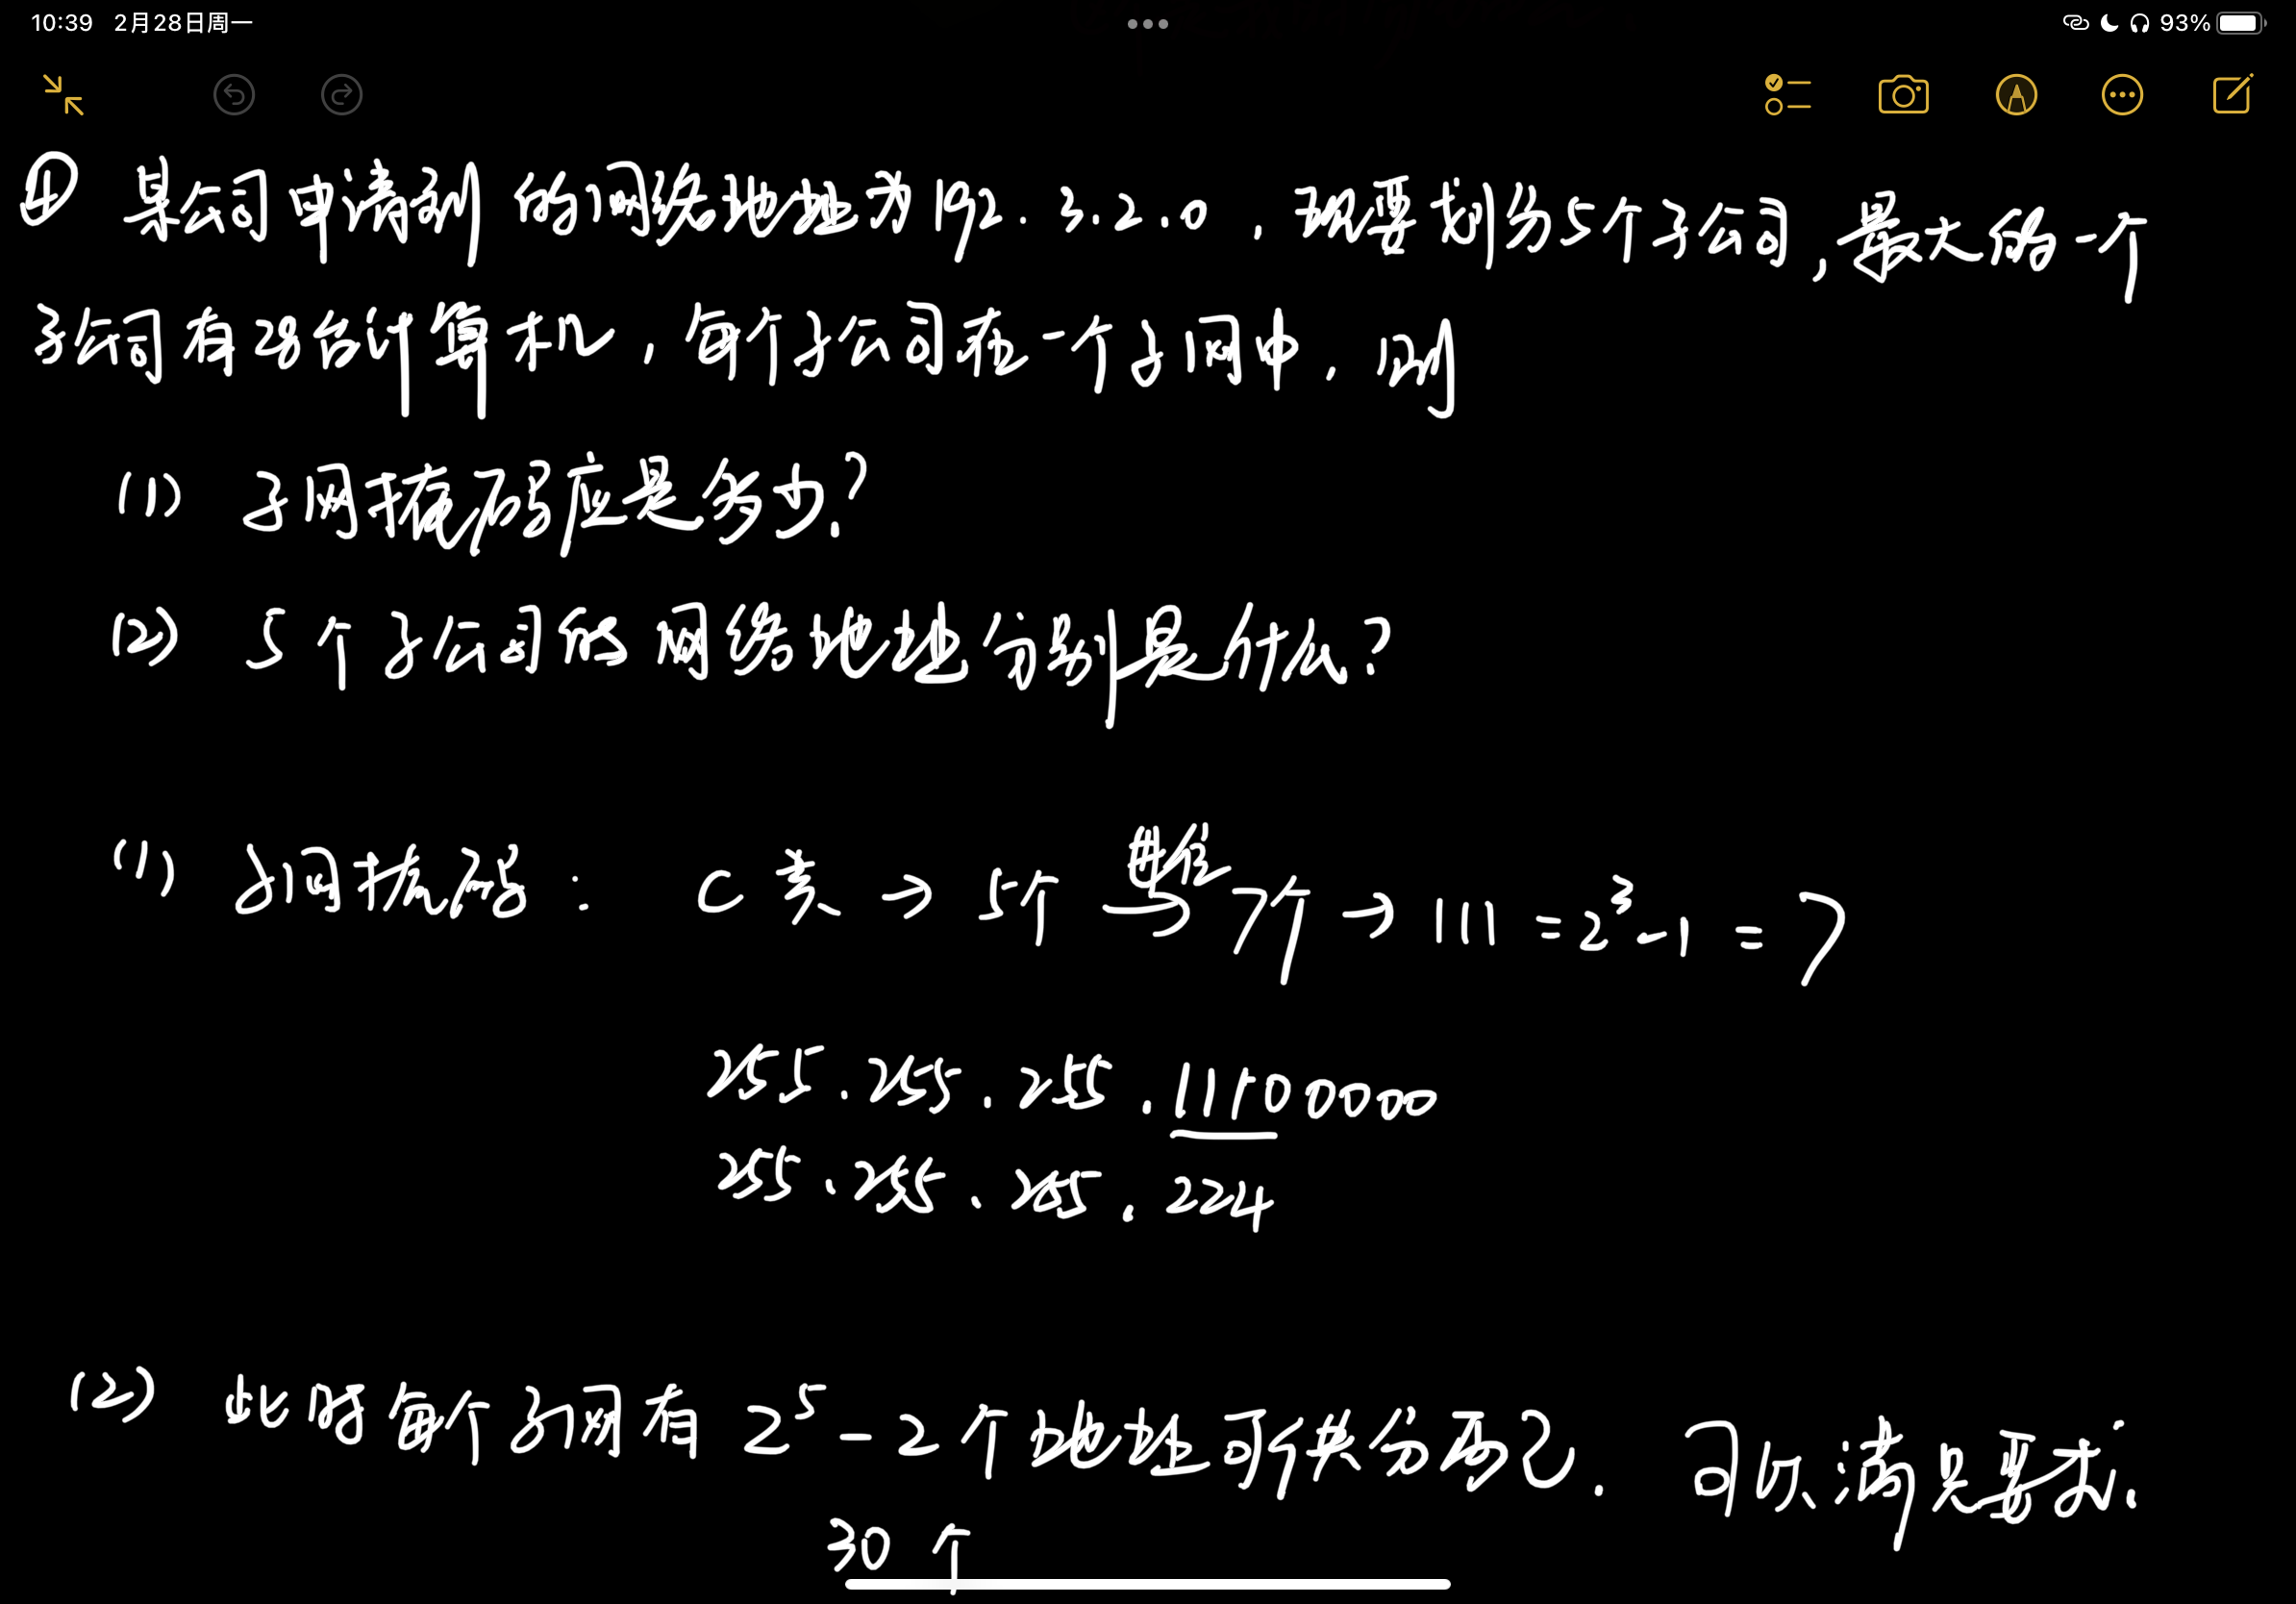 10:39 2月28日周一 93%
④ 某公司申请到的网络地址为192.3.2.0，现要划分5个子公司，最大的一个
子公司有28台计算机，每个子公司在一个子网中，则
(1) 子网掩码应是多少？
(2) 5个子公司的网络地址分别是什么？
(1) 子网掩码： C类 → 5个 → 7个 → 111 = 2³-1 = 7
255.255.255.11100000
255.255.255.224
(2) 此时每个子网有 2⁵-2个地址可供分配. 可以满足要求.
30个